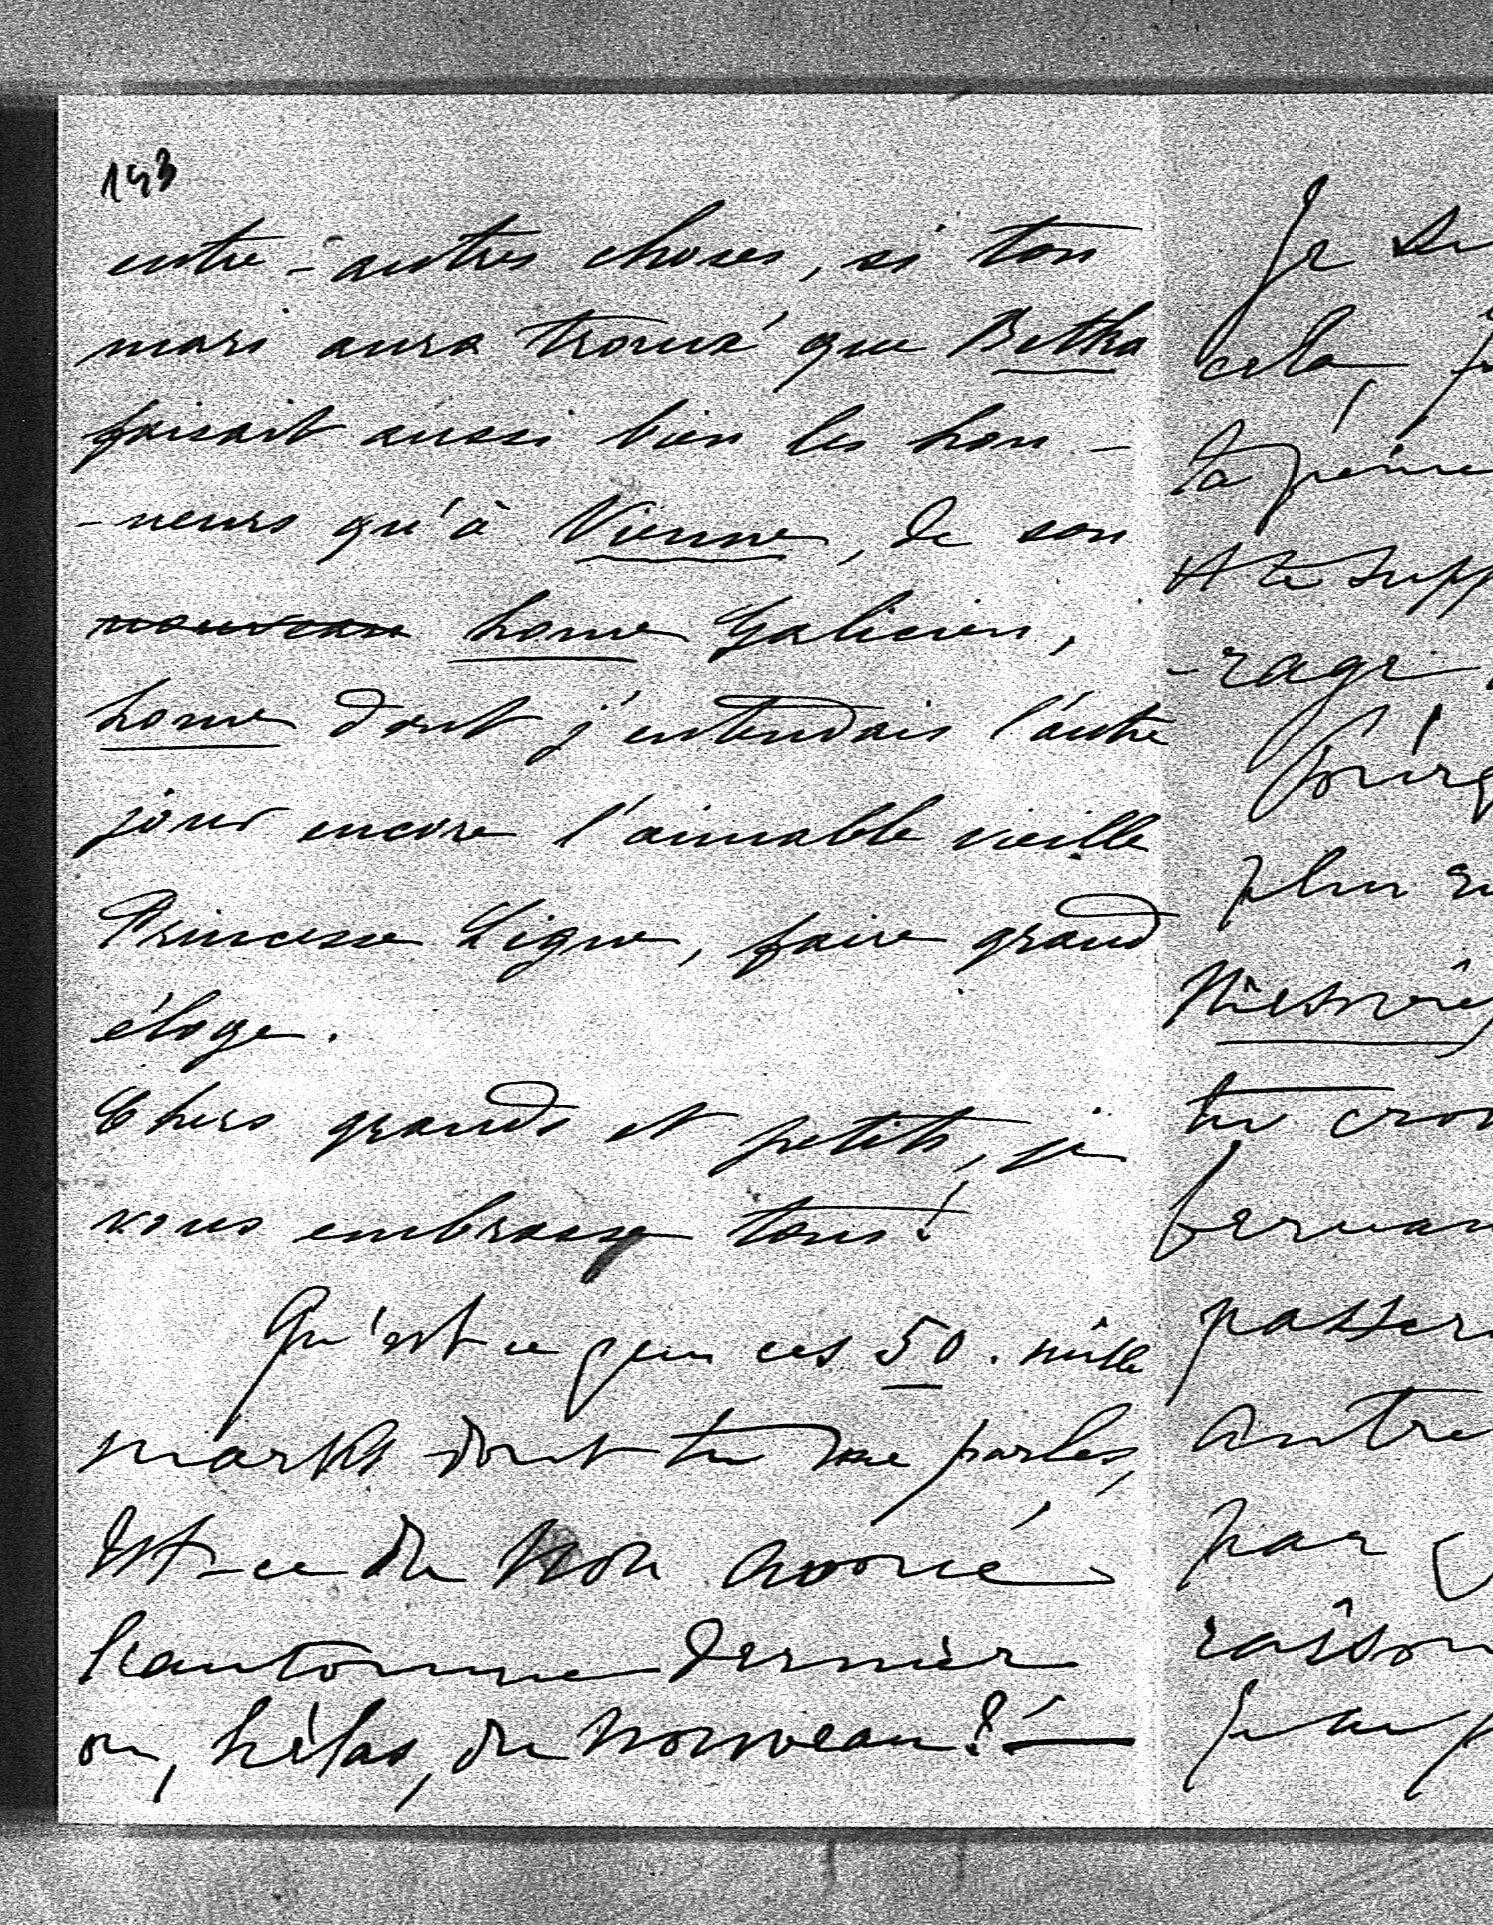 193
entre-autres choses, si ton
mari aura trouvé que Betka
faisait aussi bien les hon-
-neurs qu'à Vienne, de son
nouveau home Galicien,
home dont j'entendais l'autre
jour encore l'aimable vieille
Princesse Ligne, faire grand
éloge.
Chers grands et petits, je
vous embrasse tous!
Qu'est ce que ces 50. mille
marks dont tu me parles,
Est-ce du non avoué
l'automne dernier
ou, hélas, du nouveau?! —
Je
cela,
ta peine
et te supp
-rage
plus
tu
passer
autre
par
raison